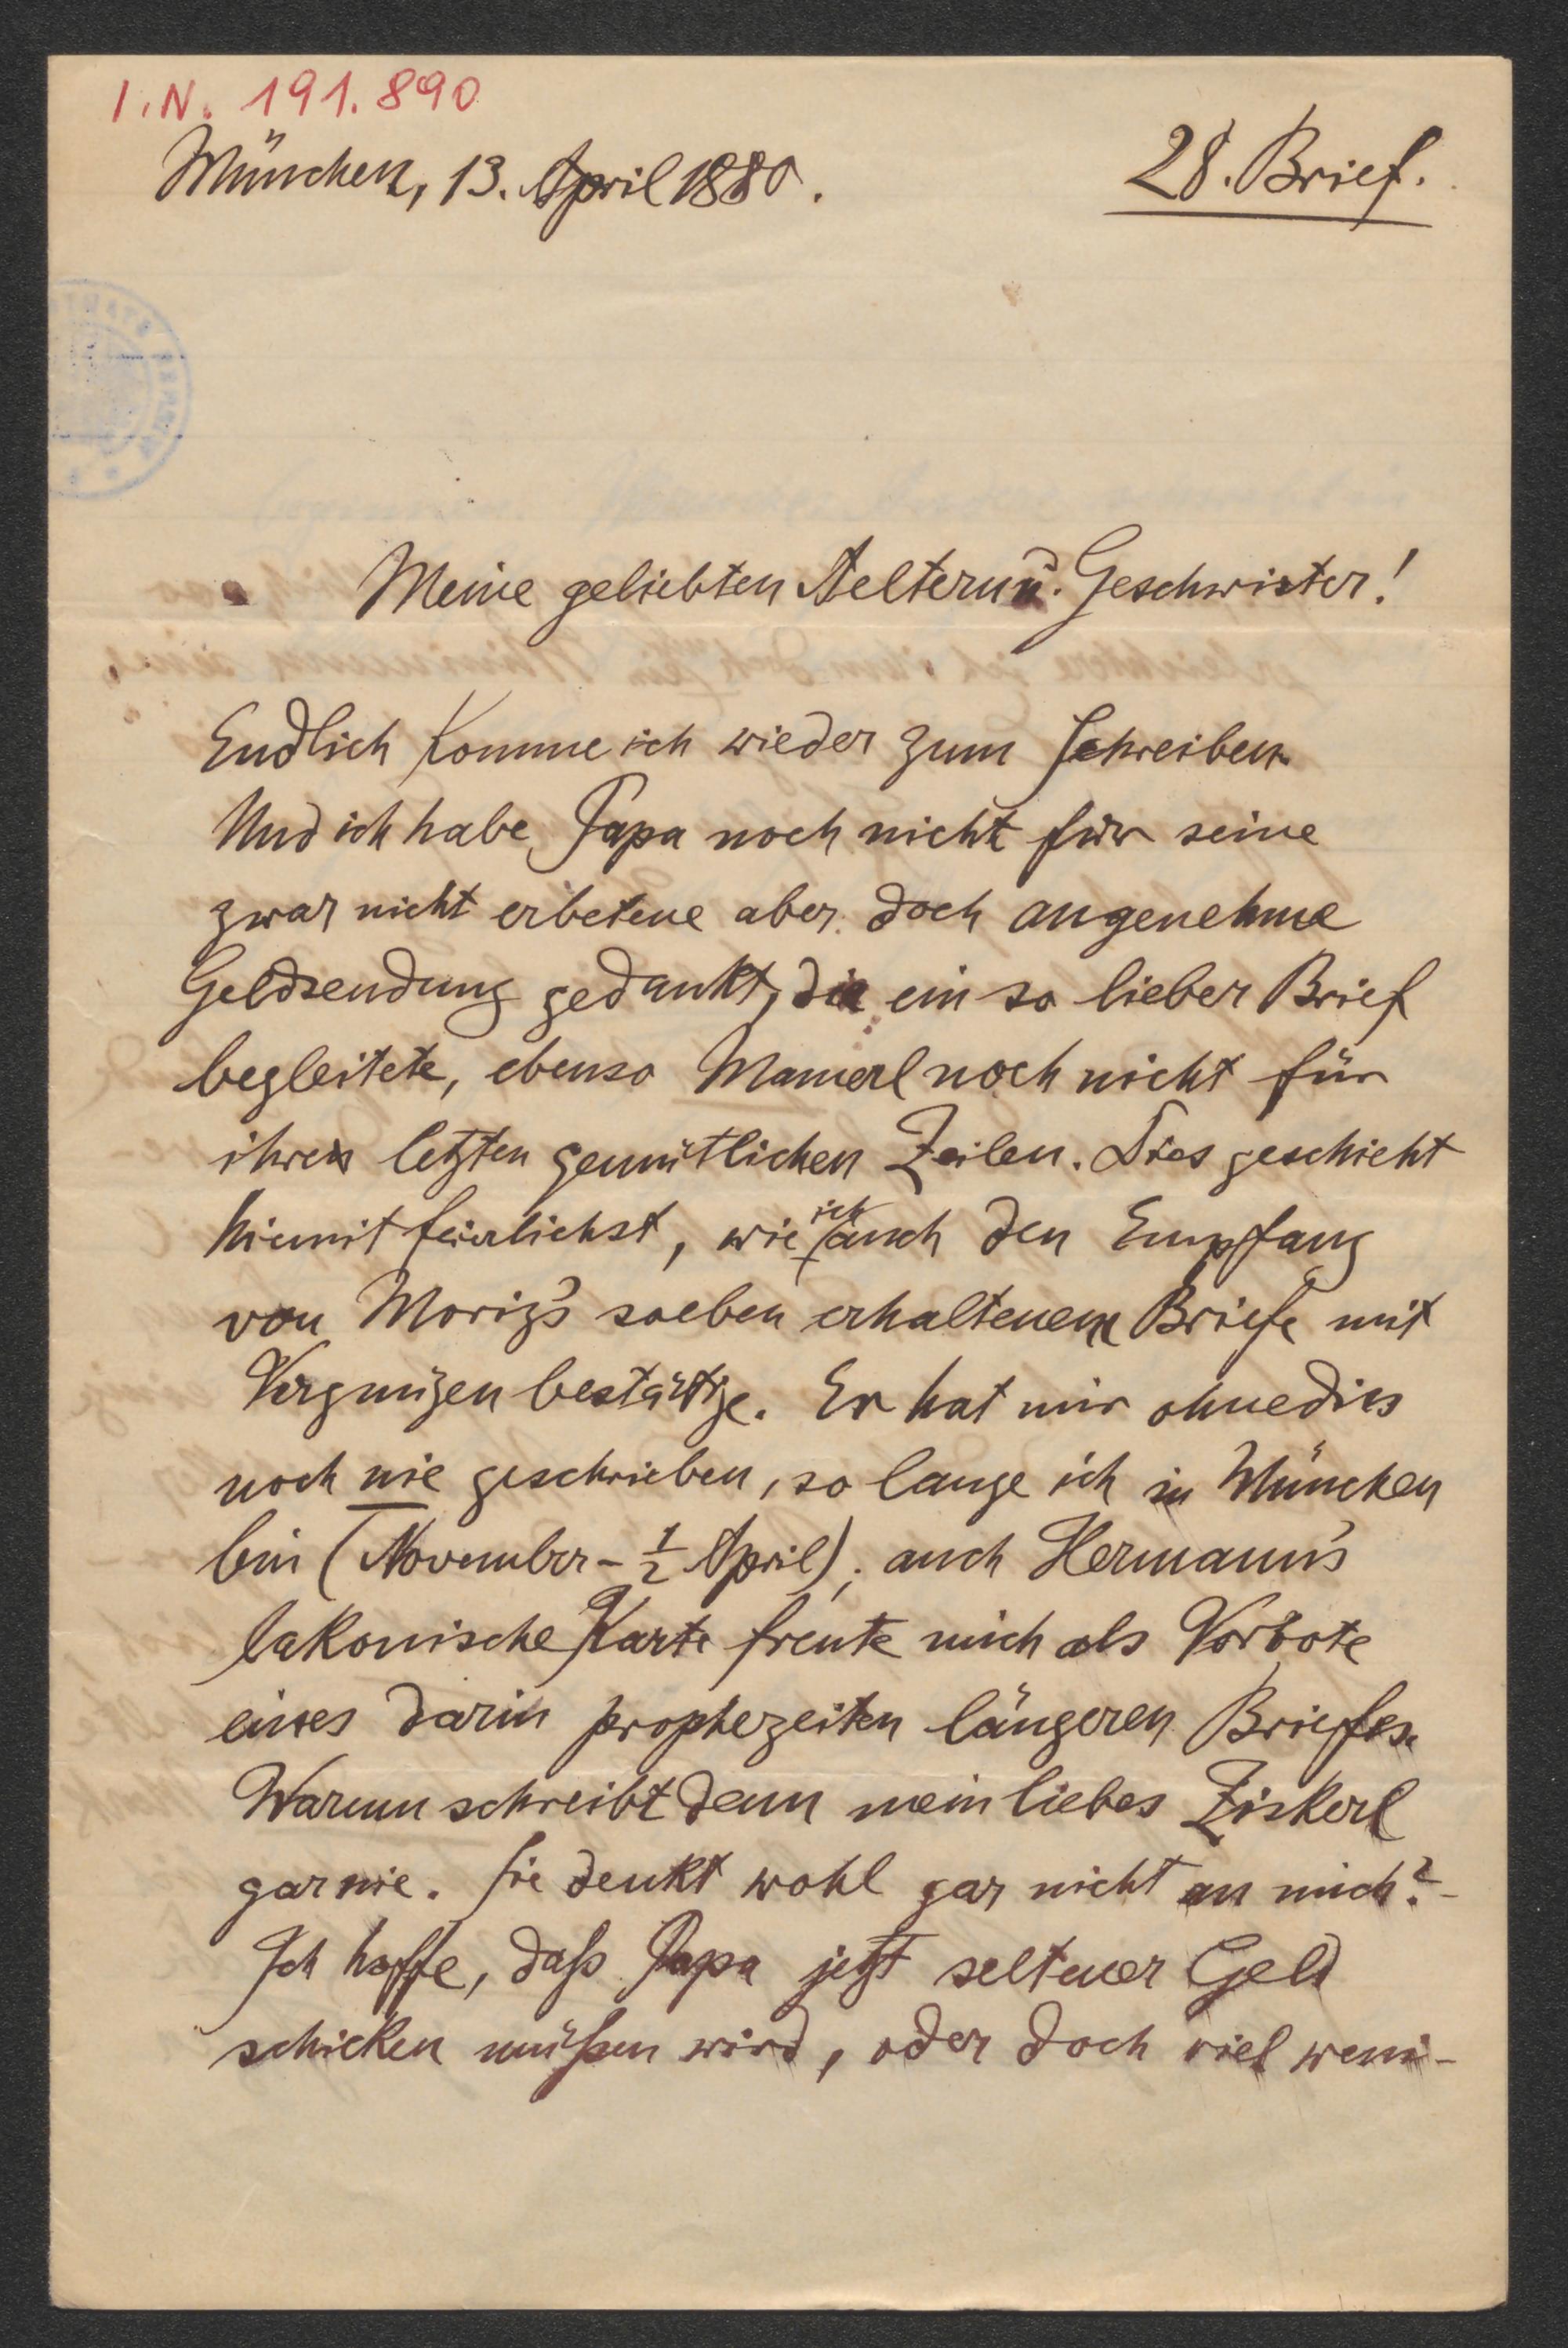 I.N. 191.890
München, 13. April 1880.
28. Brief.
Meine geliebten Aeltern u. Geschwister!
Endlich komme ich wieder zum Schreiben.
Und ich habe Papa noch nicht für seine
zwar nicht erbetene aber doch angenehme
Geldsendung gedankt, die ein so lieber Brief
begleitete, ebenso Mamerl noch nicht für
ihren letzten gemütlichen Zeilen. Dies geschieht
hiemit feierlichst, wie ich auch den Empfang
von Moriz's soeben erhaltenem Briefe mit
Vergnügen bestättige. Er hat mir ohnedies
noch nie geschrieben, so lange ich in München
bin (November - ½ April); auch Hermann's
lakonische Karte freute mich als Vorbote
eines darin prophezeiten längeren Briefes.
Warum schreibt denn mein liebes Ziskerl
gar nie. Sie denkt wohl gar nicht an mich? -
Ich hoffe, daß Papa jetzt seltener Geld
schicken müßen wird, oder doch viel weni-